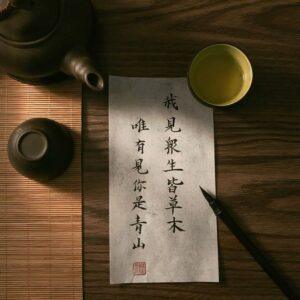 我見眾生皆草木
唯有見你是青山